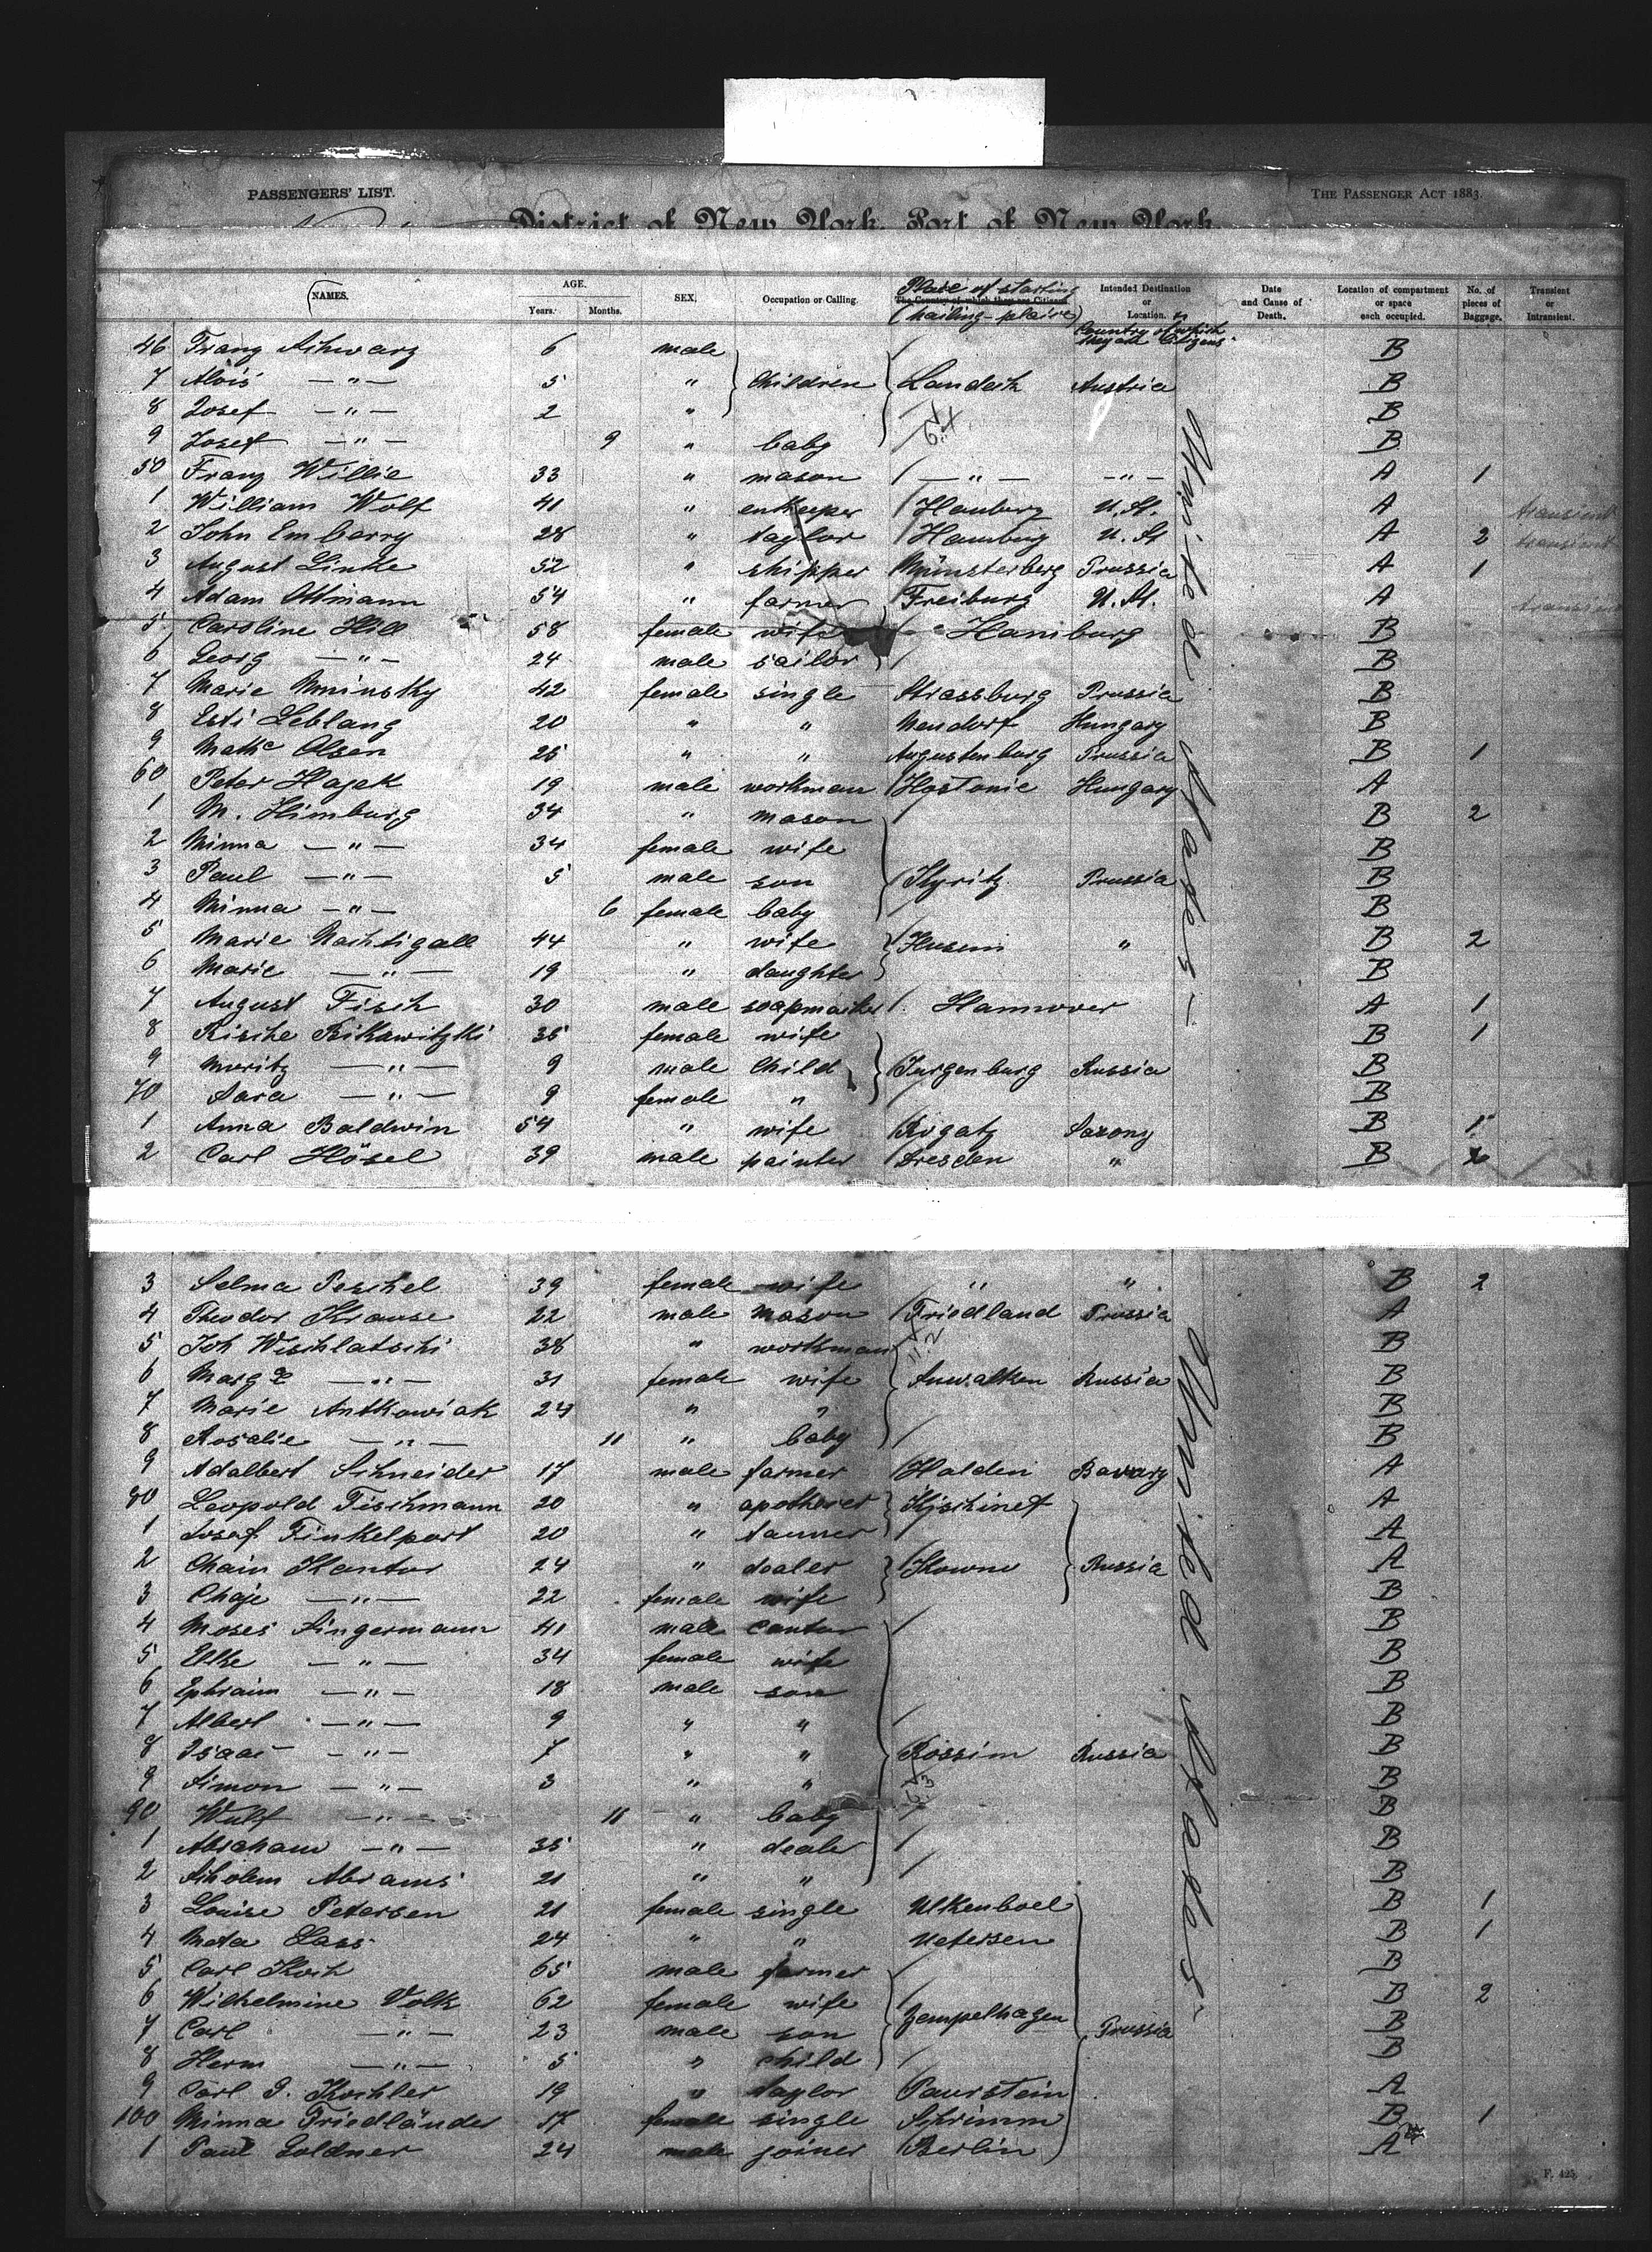 PASSENGERS' LIST.
THE PASSENGER ACT 1883.
District of New York, Port of New York
NAMES. AGE. Years. Months. SEX. Occupation or Calling. Place of starting The Country of which they are Citizens (hailing-place) Intended Destination or Location. Country of which they are Citizens Date and Cause of Death. Location of compartment or space each occupied. No. of pieces of Baggage. Transient or Intransient.
46 Franz Schwarz 6 male B
7 Alois —"— 5 " Children Landeck Austria B
8 Josef —"— 2 " B
9 Josef —"— 9 " baby B
50 Franz Willie 33 " mason —"— —"— A 1
1 William Wolf 41 " Hamburg U. St. A transient
2 John Embarry 28 " taylor Hamburg U. St A 2 transient
3 August Linde 52 " shipper Münsterberg Prussia A 1
4 Adam Ottmann 54 " farmer Freiburg U. St. A transient
5 Caroline Hill 58 female wife Hamburg B
6 Georg —"— 24 male sailor B
7 Marie 42 female single Strassburg Prussia B
8 Esti Leblang 20 " " Neudorf Hungary B
9 Olsen 25 " " Augustenburg Prussia B 1
60 Peter Hajek 19 male workman Hostonic Hungary A
1 M. Himburg 34 " mason B 2
2 Minna —"— 34 female wife B
3 Paul —"— 5 male son Kyritz Prussia B
4 Minna —"— 6 female baby B
5 Marie Nachtigall 44 " wife Husum " B 2
6 Marie —"— 19 " daughter B
7 August Fisch 30 male soapmaker Hannover A 1
8 Rische Rikawitzki 35 female wife B 1
9 Moritz —"— 9 male Child Jurgenburg Russia B
70 Sara —"— 9 female " B
1 Anna Baldwin 54 " wife Rogatz Saxony B 1
2 Carl Hösel 39 male painter Dresden " B
3 Selma Peschel 39 female wife " " B 2
4 Theodor Krause 22 male mason Friedland Prussia A
5 Joh Wischlatschi 38 " workman B
6 —"— 31 female wife Suwalken Russia B
7 Marie Antkowiak 24 " " B
8 Rosalie —"— 11 " baby B
9 Adalbert Schneider 17 male farmer Halden Bavary A
80 Leopold Fischmann 20 " Kischinef A
1 Josef Finkelport 20 " tanner A
2 Chain Kantor 24 " dealer Kowno Russia A
3 Chaje —"— 22 female wife B
4 Moses Singermann 41 male Cantor B
5 Elke —"— 34 female wife B
6 Ephraim —"— 18 male son B
7 Albert —"— 9 " " B
8 Isaac —"— 7 " " Rossim Russia B
9 Simon —"— 3 " " B
90 Wulf —"— 11 " baby B
1 Abraham —"— 35 " dealer B
2 Scholem Abrams 21 " " B
3 Louise Petersen 21 female single Ulkenboel B 1
4 Meta Lass 24 " " Uetersen B 1
5 Carl Koch 65 male farmer B
6 Wilhelmine Volk 62 female wife B 2
7 Carl —"— 23 male son Zempelhagen Prussia B
8 Herm —"— 5 " child B
9 Carl J. Kochler 19 " taylor Paurstein A
100 Minna Friedländer 17 female single Schrimm B 1
1 Paul Goldner 24 male joiner Berlin A
United States
United States
F. 425.